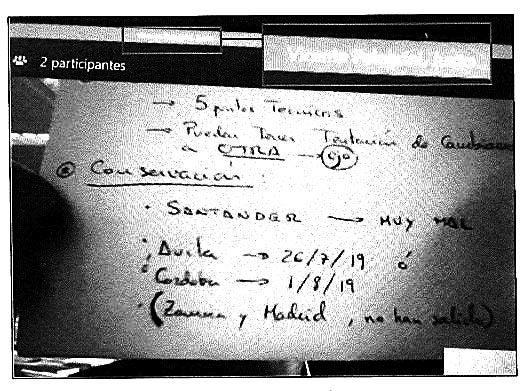 2 participantes
→ 5 puntos Técnicos
→ Pueden tener Tentación de Cambiarse
a OTRA → ojo
Conservación:
· SANTANDER → MUY MAL
· Avila → 26/7/19 ó
· Cordoba → 1/8/19
· (Zamora y Madrid, no han salido)